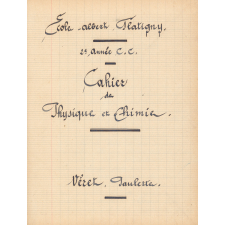 École Albert Flatigny.
2e Année C.C.
Cahier
de
Physique et Chimie.
Véret. Paulette.